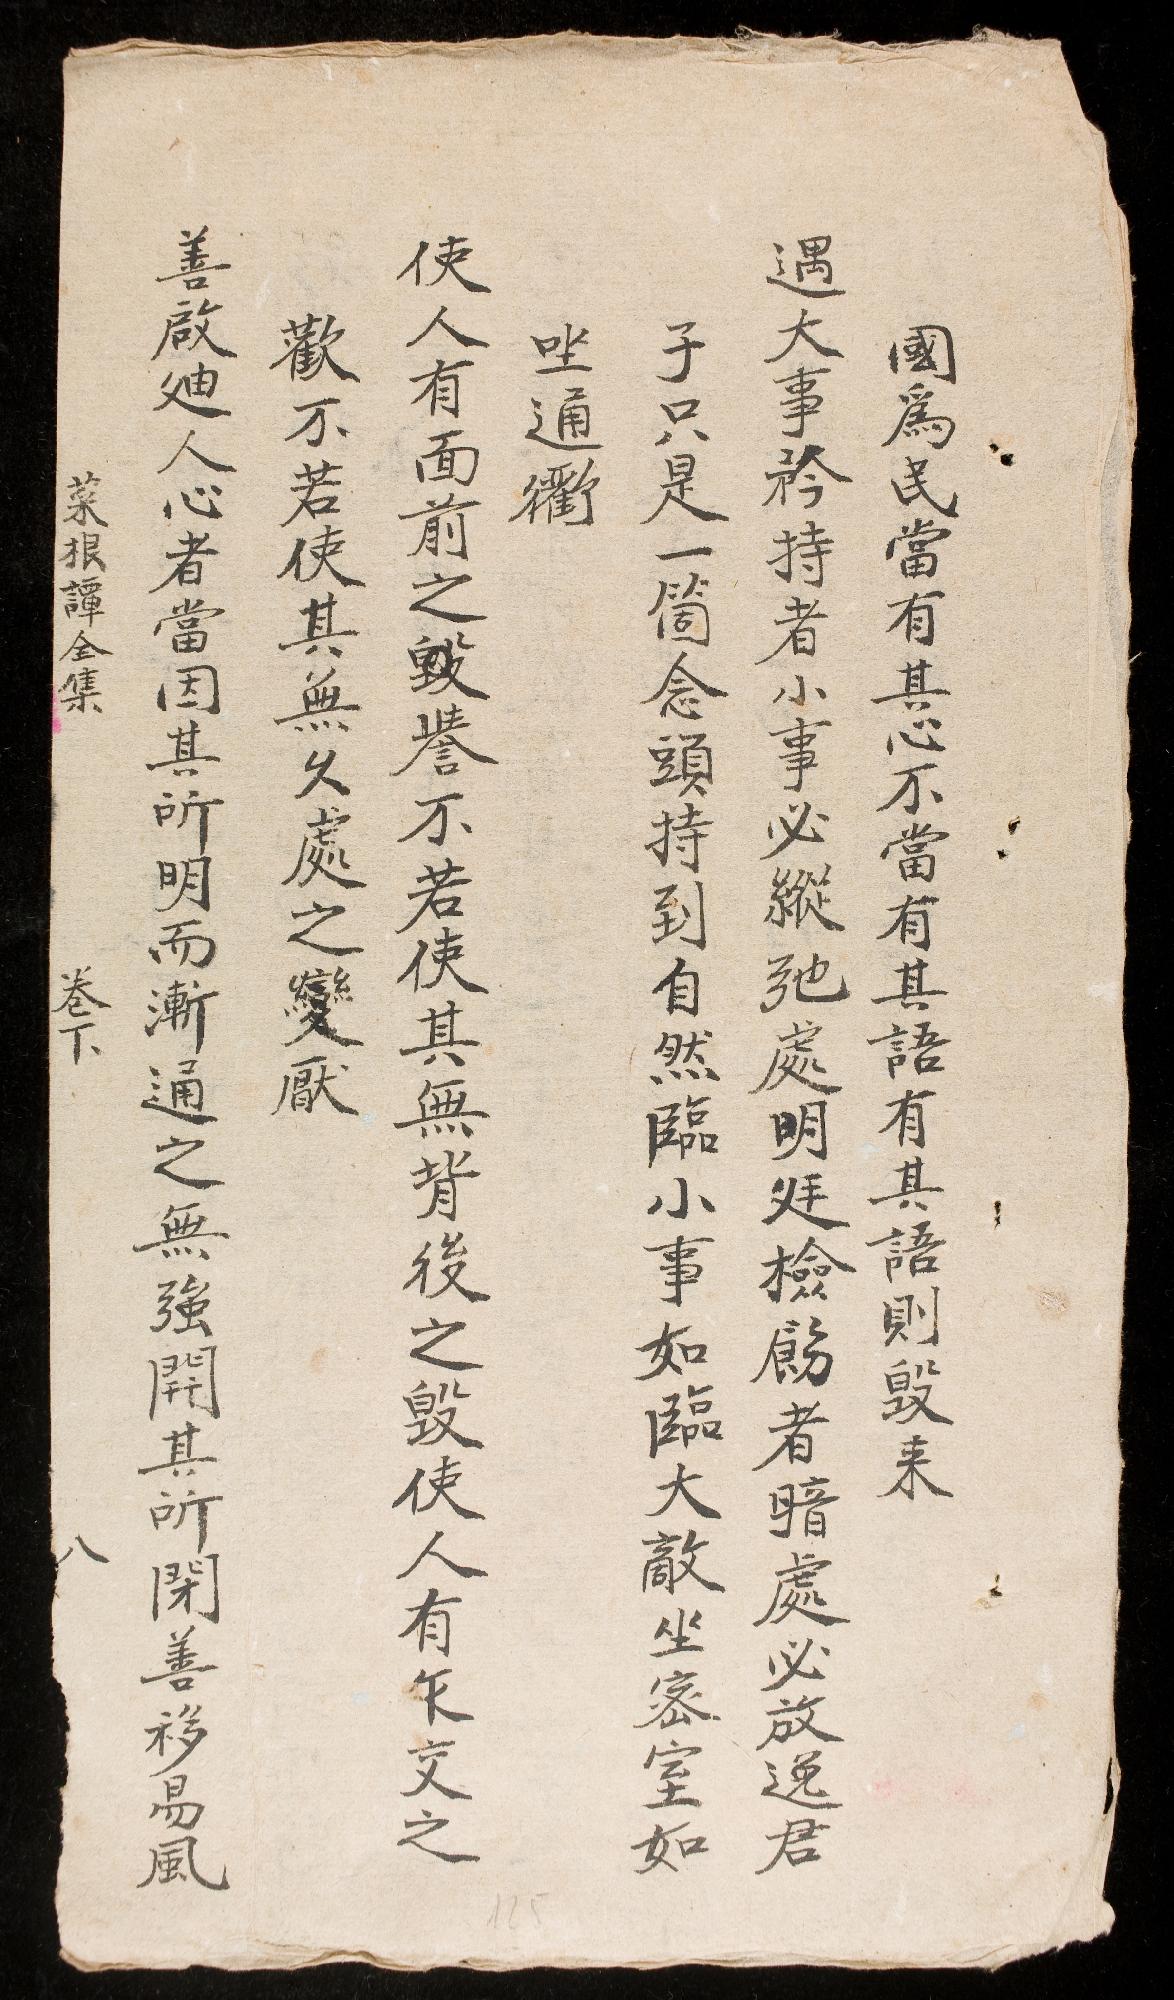 國爲民當有其心不當有其語有其語則毀来
遇大事矜持者小事必縱弛處明廷檢飭者暗處必放逸君
子只是一箇念頭持到自然臨小事如臨大敵坐密室如
坐通衢
使人有面前之毀譽不若使其無背後之毀使人有乍交之
歡不若使其無久處之變厭
善啟迪人心者當因其所明而漸通之無強開其所閉善移易風
菜根譚全集 卷下 八
125